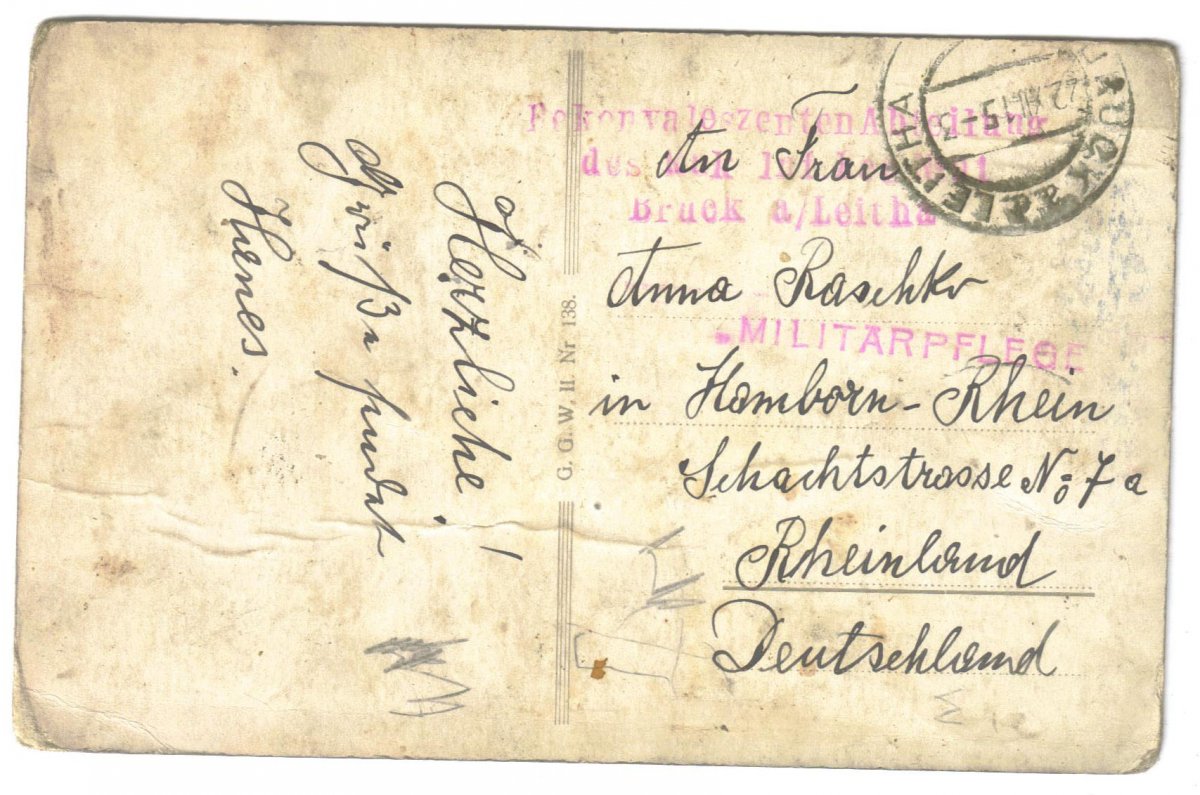 Herzliche!
Grüße sendet
Hanes.
G. G. W. II. Nr 138.
Rekonvaleszenten Abteilung
des
Bruck a/Leitha
An Frau
Anna Raschko
MILITÄRPFLEGE
in Hamborn-Rhein
Schachtstrasse No 7a
Rheinland
Deutschland
BRUCK a/d LEITHA